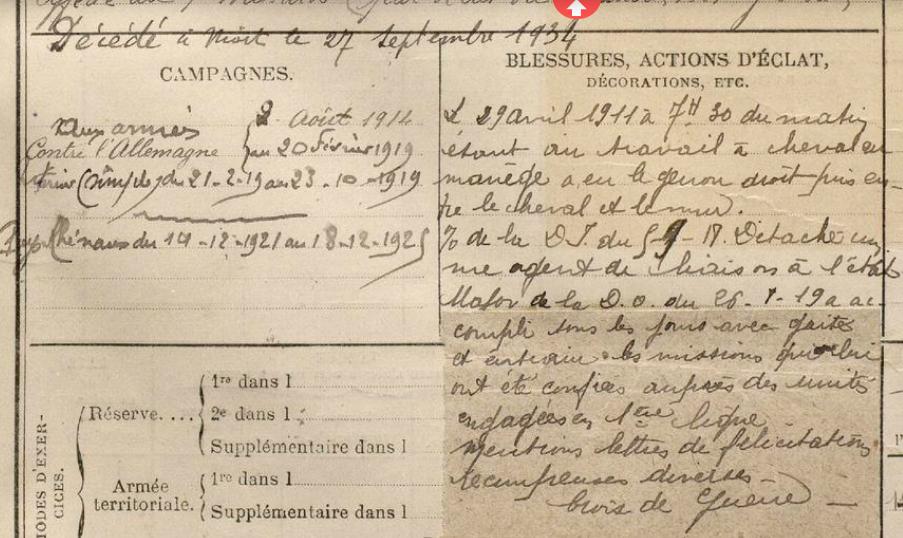 Décédé à Niort le 27 Septembre 1934
CAMPAGNES.
Aux armées
Contre l'Allemagne
2 Août 1914
au 20 Février 1919
(simple) du 21-2-19 au 23-10-1919
Rhénans du 14-12-1921 au 18-12-1925
BLESSURES, ACTIONS D'ÉCLAT,
DÉCORATIONS, ETC.
L 29 avril 1911 à 7H 30 du matin
étant au travail à cheval au
manège a eu le genou droit pris en-
tre le cheval et le mur.
de la D.I. du 5-9-18. Détaché com
me agent de liaison à l'état
Major de la D.I. du 26- -19 a ac-
compli tous les jours avec gaité
et entrain les missions qui lui
ont été confiées auprès des unités
engagées en 1ère ligne
mentions lettres de félicitations
récompenses diverses -
Croix de Guerre -
MODES D'EXER-
CICES.
Réserve....
1re dans l
2e dans l
Supplémentaire dans l
Armée
territoriale.
1re dans l
Supplémentaire dans l